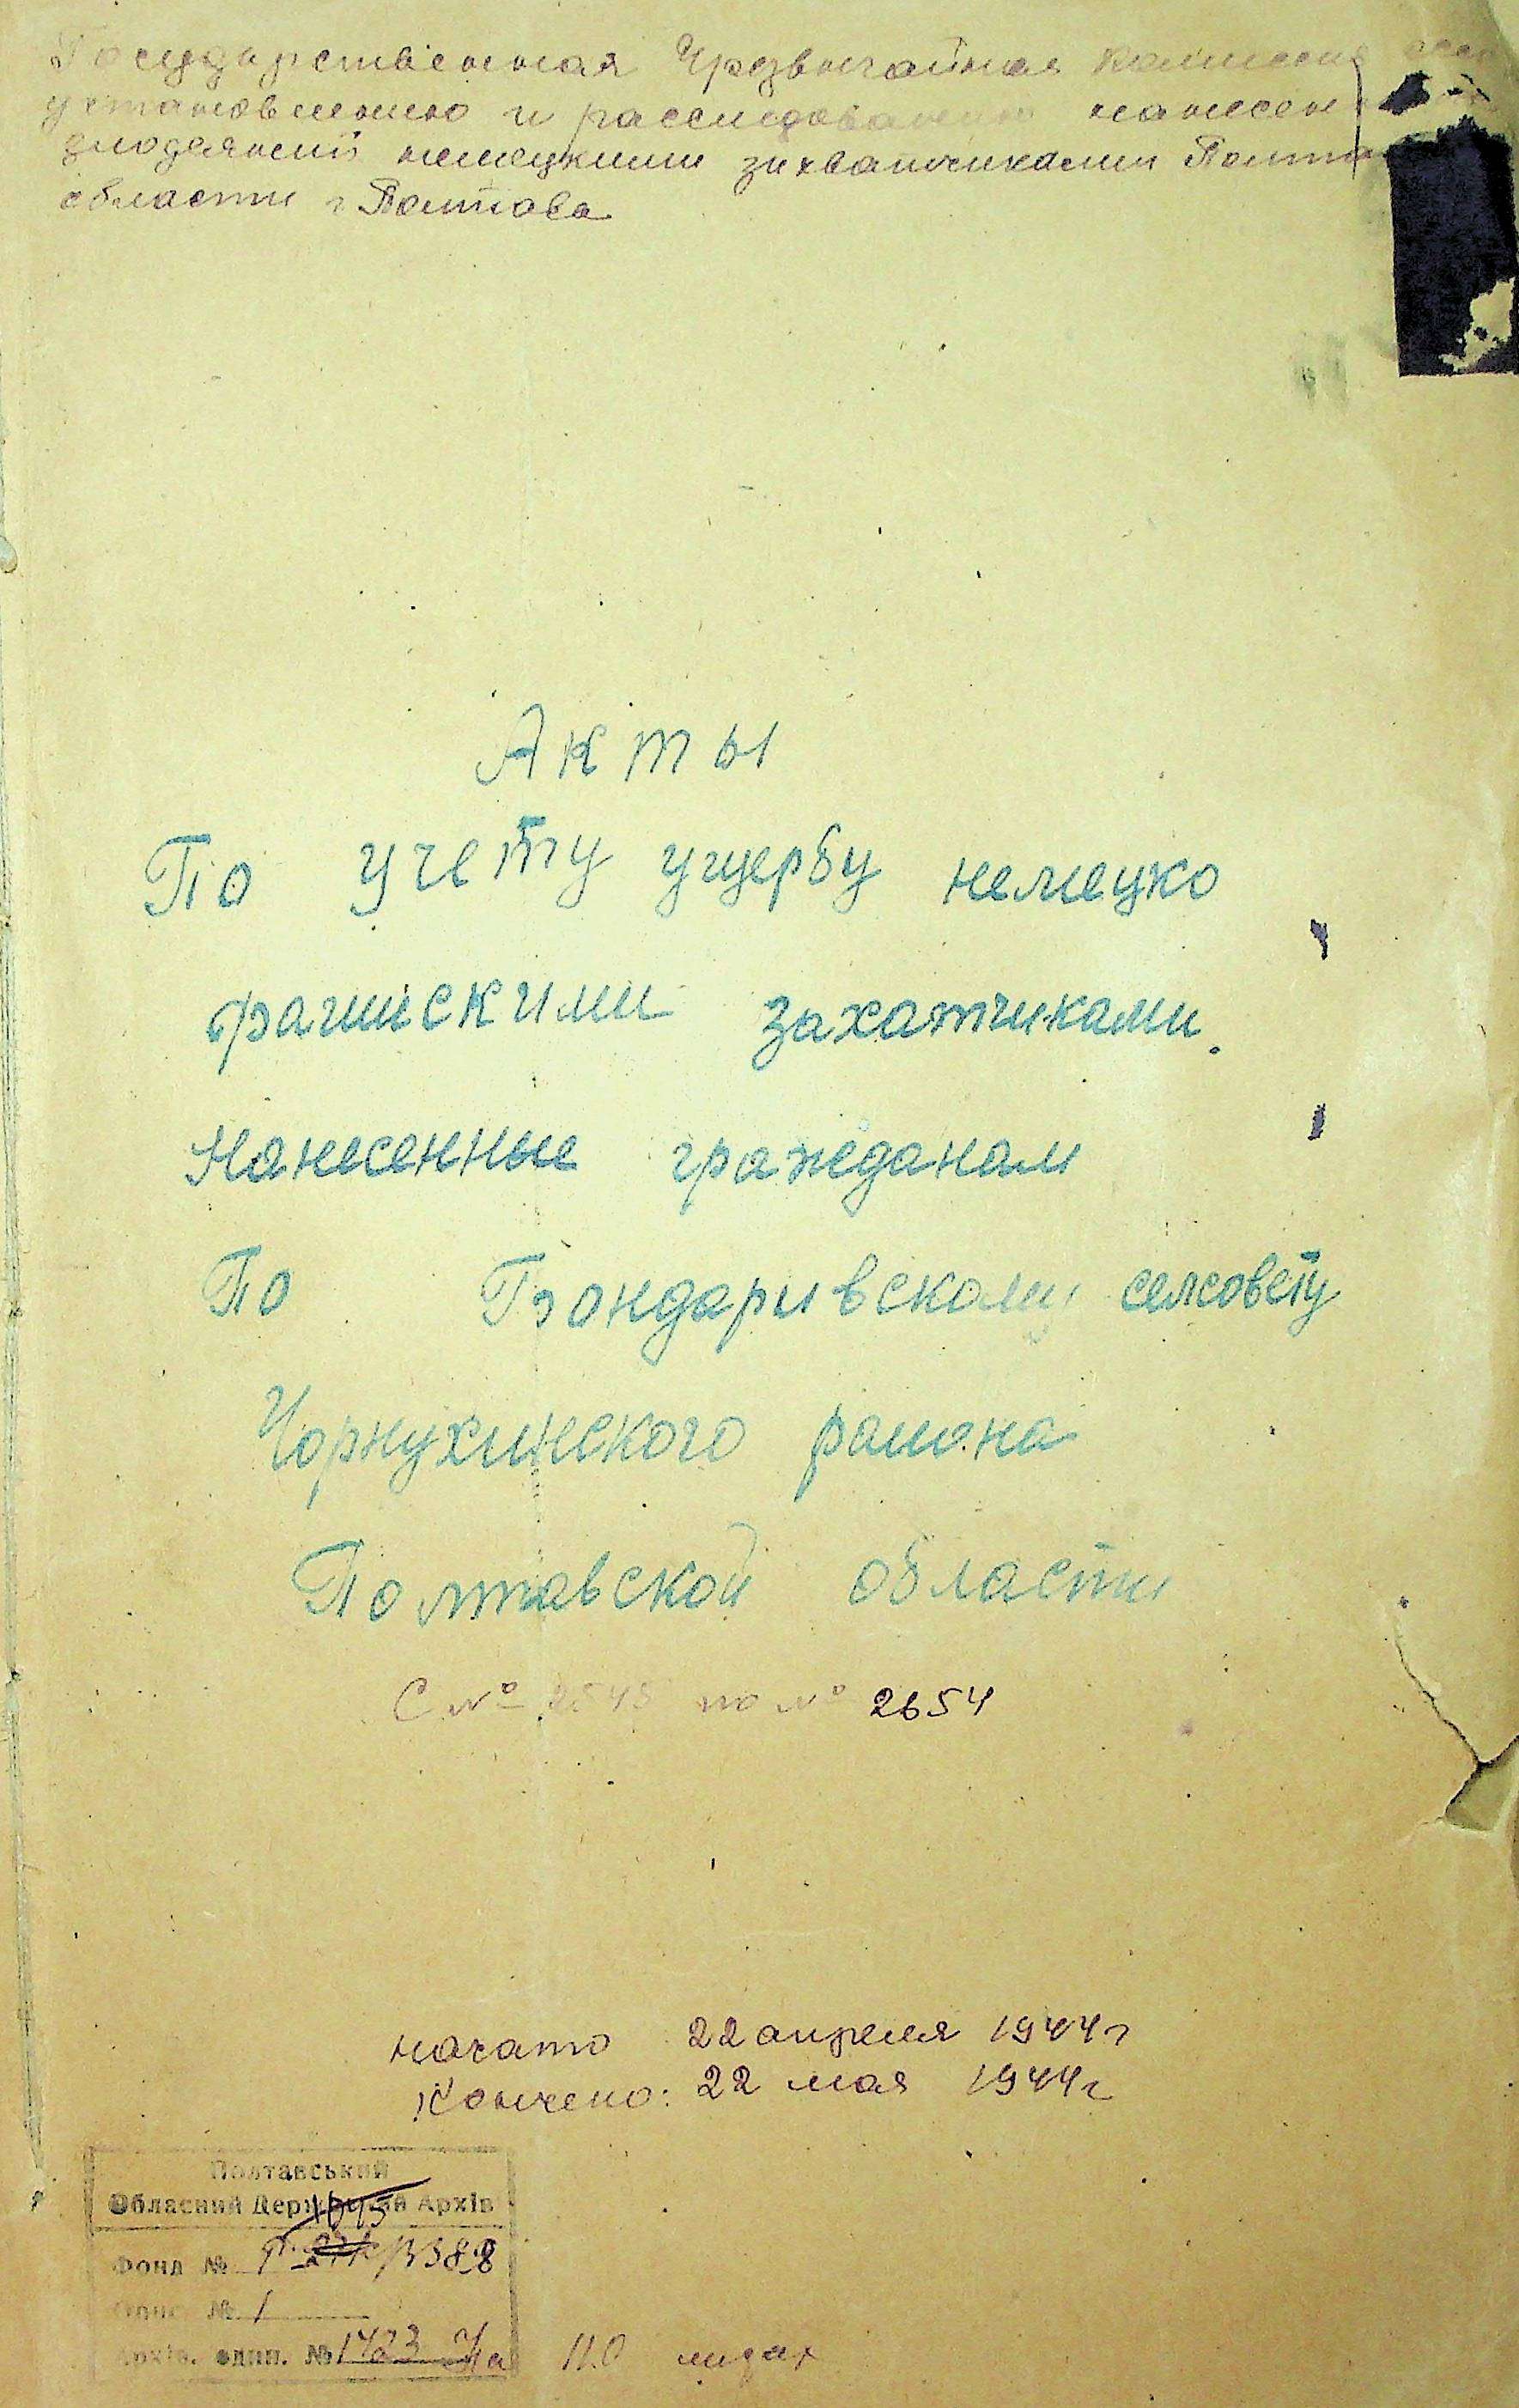 Государственная Чрезвычайная комиссия
установлению и расследованию нанесен
злодеяний немецкими захватчиками Полта
области г Полтава
Акты
По учету ущербу немецко
фашискими захатчиками.
Нанесенные гражданам
По Бондаривскому селсовету
Чорнухинского района
Полтавской области
С № 2545 по № 2654
начато 22 апреля 1944 г
Кончено: 22 мая 1944 г
Полтавський
Обласний Державний Архів
1945
Фонд № Р. 3388
Опис № 1
Архів. один. № 1423 На 110 лидах